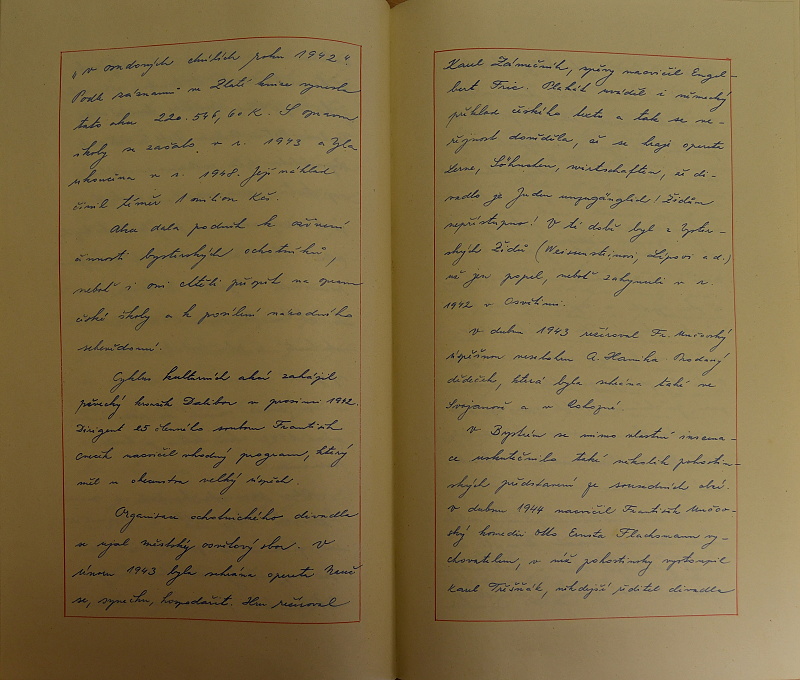 „v osudových chvílích roku 1942".
Podle záznamu ve Zlaté knize vynesla
tato akce 220.546,60 K. S opravou
školy se začalo v r. 1943 a byla
ukončena v r. 1948. Její náklad
činil téměř 1 milion Kčs.
Akce dala podnět k oživení
činnosti bysterských ochotníků,
neboť i oni chtěli přispět na opravu
české školy a k posílení národního
sebevědomí.
Cyklus kulturních akcí zahájil
pěvecký kroužek Dalibor v prosinci 1942.
Dirigent 25 členného souboru František
nacvičil vhodný program, který
měl u obecenstva velký úspěch.
Organisace ochotnického divadla
se ujal městský osvětový sbor. V
únoru 1943 byla sehrána opereta Nauč
se, synečku, hospodařit. Hru režíroval
Karel Zámečník, zpěvy nacvičil Engel-
bert Fric. Plakát uváděl i německý
překlad českého textu a tak se ve-
řejnost dověděla, že se hraje opereta
Lerne, Söhnchen, wirtschaften, že di-
vadlo je Juden unzugänglich! Židům
nepřístupno! V té době byl z byster-
ských Židů (Weissensteinovi, Lipovi a d.)
už jen popel, neboť zahynuli v r.
1942 v Osvětimi.
V dubnu 1943 režíroval Fr.
úspěšnou veselohru Prodaný
dědeček, která byla sehrána také ve
Svojanově a v Rohozné.
V Bystrém se mimo vlastní inscena-
ce uskutečnilo také několik pohostin-
ských představení ze sousedních obcí.
V dubnu 1944 nacvičil František
ský komedii Otto Ernsta Flachsmann vy-
chovatelem, v níž pohostinsky vystoupil
Karel Třešňák, někdejší ředitel divadla